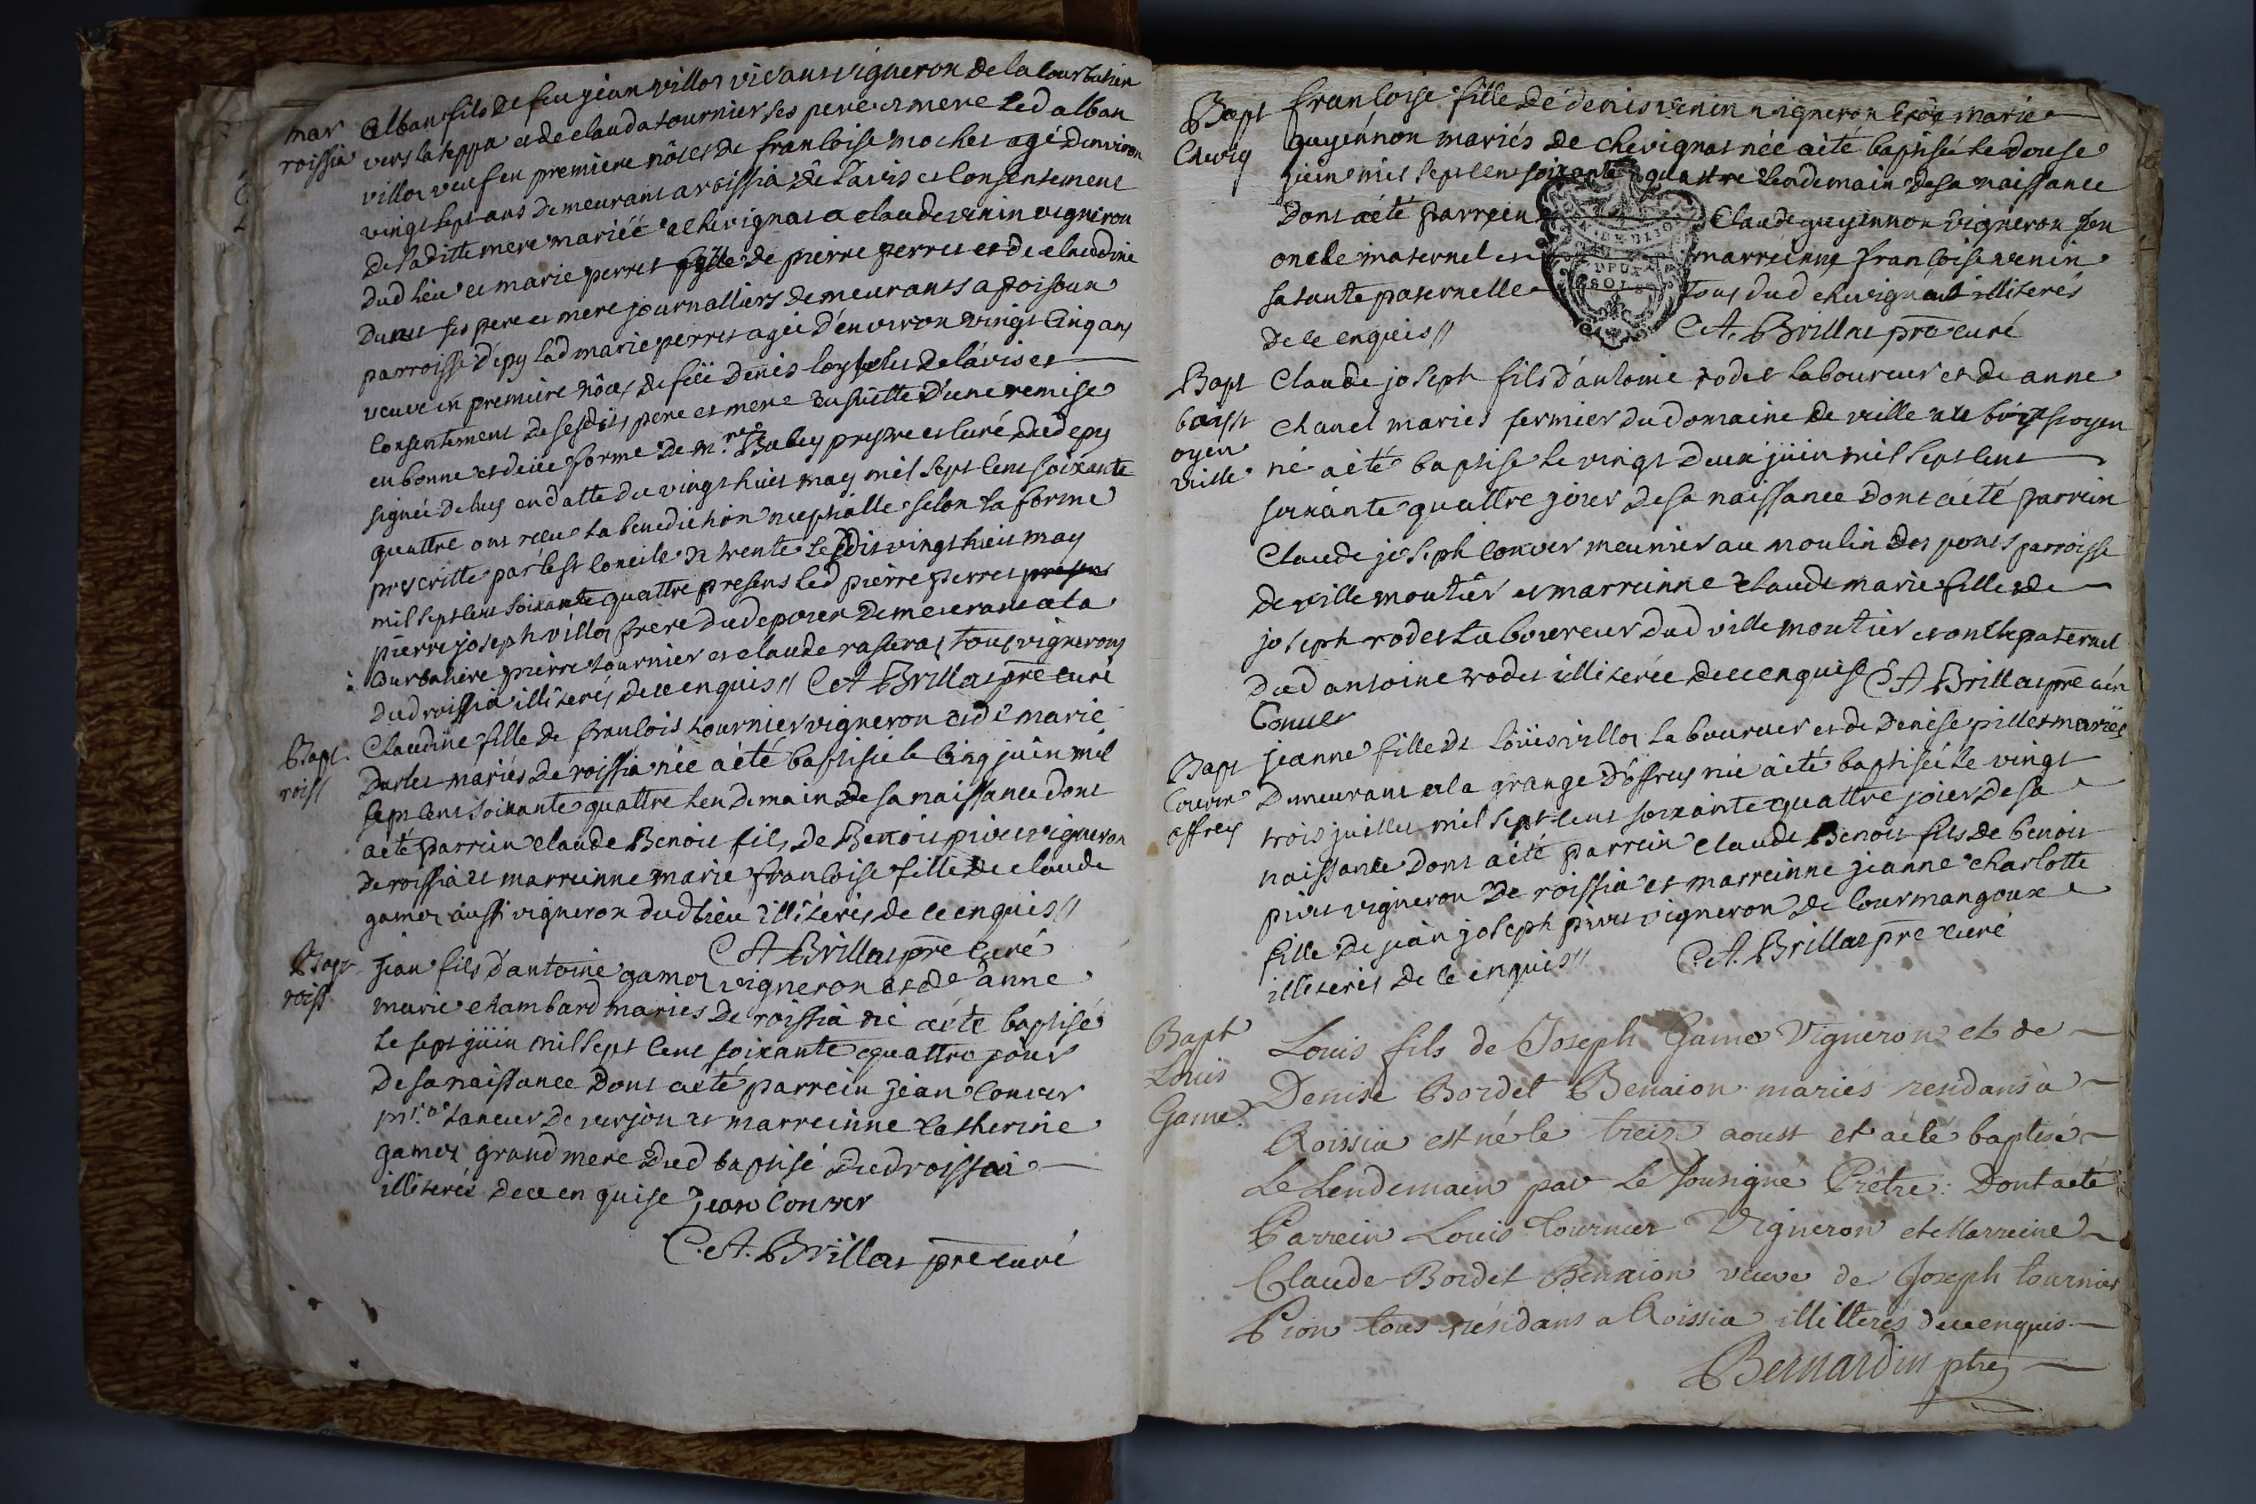 mar
roissia
alban fils de feu jean villot vivant vigneron de la courbatiere
vers la teppa et de clauda tournier ses pere et mere led alban
villot veuf en premiere nôces de francoise mochet agé denviron
vingt sept ans demeurant a roissia de l'avis et consentement
de sa ditte mere mariéé a chevignat a claude venin vigneron
dud lieu et marie perret fille de pierre perret et de claudine
ses pere et mere journalliers demeurants a poisoux
parroisse d'epy lad marie perret agée d'environ vingt cinq ans
veuve en premiere nôces de feu denis de l'avis et
consentement de sesdits pere et mere ensuitte d'une remise
en bonne et deue forme de mre Buley prestre et curé dud epy
signée de luy en datte du vingt huit may mil sept cent soixante
quattre ont reçu la benediction nuptialle selon la forme
prescritte par le st concile de trente le dit vingt huit may
mil sept cent soixante quattre presens led pierre perret
pierre joseph villot frere dud epoux demeurant a la
courbatiere pierre tournier et claude tous vignerons
dud roissia illiterés de ce enquis // C A Brillat pre curé
Bapt
roiss
Claudine fille de francois tournier vigneron et de marie
mariés de roissia née a été baptisée le cinq juin mil
sept cent soixante quattre lendemain de sa naissance dont
a eté parrein claude Benoit fils de Benoit vigneron
de roissia et marreinne marie francoise fille de claude
gamoz aussi vigneron dud lieu illiterés de ce enquis //
C A Brillat pre curé
Bapt
roiss
jean fils d'antoine gamoz vigneron et de anne
marie chambard mariés de roissia né a été baptisé
le sept juin mil sept cent soixante quattre jour
de sa naissance dont a eté parrein jean conver
tanneur de verjon et marreinne catherine
gamoz grand mere dud baptisé dud roissia
illiterée de ce enquise jean Conver
C. A. Brillat pre curé
Bapt
Chevig
francoise fille de denis venin vigneron et de marie
guyennon mariés de chevignat née a été baptisée le douse
juin mil sept cent soixante quattre lendemain de sa naissance
dont a été parrein Claude guyennon vigneron son
oncle maternel et marreinne francoise venin
sa tante paternelle tous dud chevignat illiterés
de ce enquis //
C. A. Brillat pre curé
Bapt
boisst
oyen
ville
Claude joseph fils d'antoine rodet laboureur et de anne
chanel mariés fermier du domaine de ville
né a été baptisé le vingt deux juin mil sept cent
soixante quattre jour de sa naissance dont a été parrein
Claude joseph conver meunier au moulin des ponts parroisse
de villemoutier et marreinne claude marie fille de
joseph rodet laboureur dud villemoutier et oncle paternel
dud antoine rodet illiterée de ce enquise C A Brillat pre curé
Conver
Bapt
affrey
jeanne fille de loüis villot laboureur et de denise pillet mariés
demeurant a la grange d'affrey née a été baptisée le vingt
trois juillet mil sept cent soixante quattre jour de sa
naissance dont a été parrein claude Benoit fils de benoit
vigneron de roissia et marreinne jeanne charlotte
fille de jean joseph vigneron de courmangoux
illiterés de ce enquis //
C. A. Brillat pre curé
Bapt
Louis
Game
Louis fils de Joseph Game Vigneron et de
Denise Bordet Benaion mariés residans à
Roissia est né le treize aoust et a été baptisé
Le Lendemain par Le sousigné Prêtre: Dont a eté
Parrein Louis Tournier Vigneron et Marreine
Claude Bordet Benaion veuve de Joseph tournier
Pion tous residans a Roissia illitterés de ce enquis
Bernardin ptre